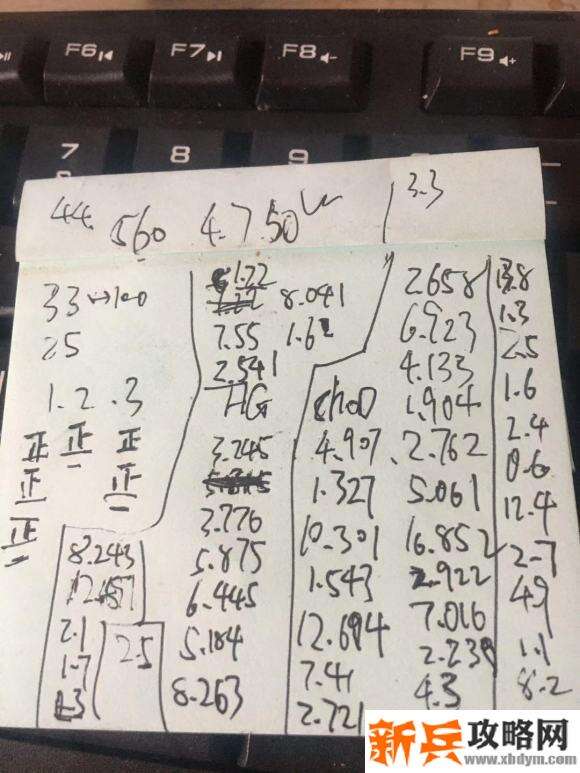 F6 F7 F8 F9
7 8 9
44. 560 4.750 3.3
33→100
25
1.2.3
正 正 正
正 正
正
8.243
2.1
1.7
2.5
1.22
7.55
2.541
HG
3.245
3.776
5.875
6.445
5.184
8.263
8.041
1.62
4.907
1.327
10.301
1.543
12.694
7.41
2.721
2.658
6.923
4.133
1.904
2.762
5.061
16.852
2.922
7.016
2.239
4.3
1.3
2.5
1.6
2.4
0.6
12.4
2.7
4.9
1.1
8.2
新兵攻略网
www.xbdym.com